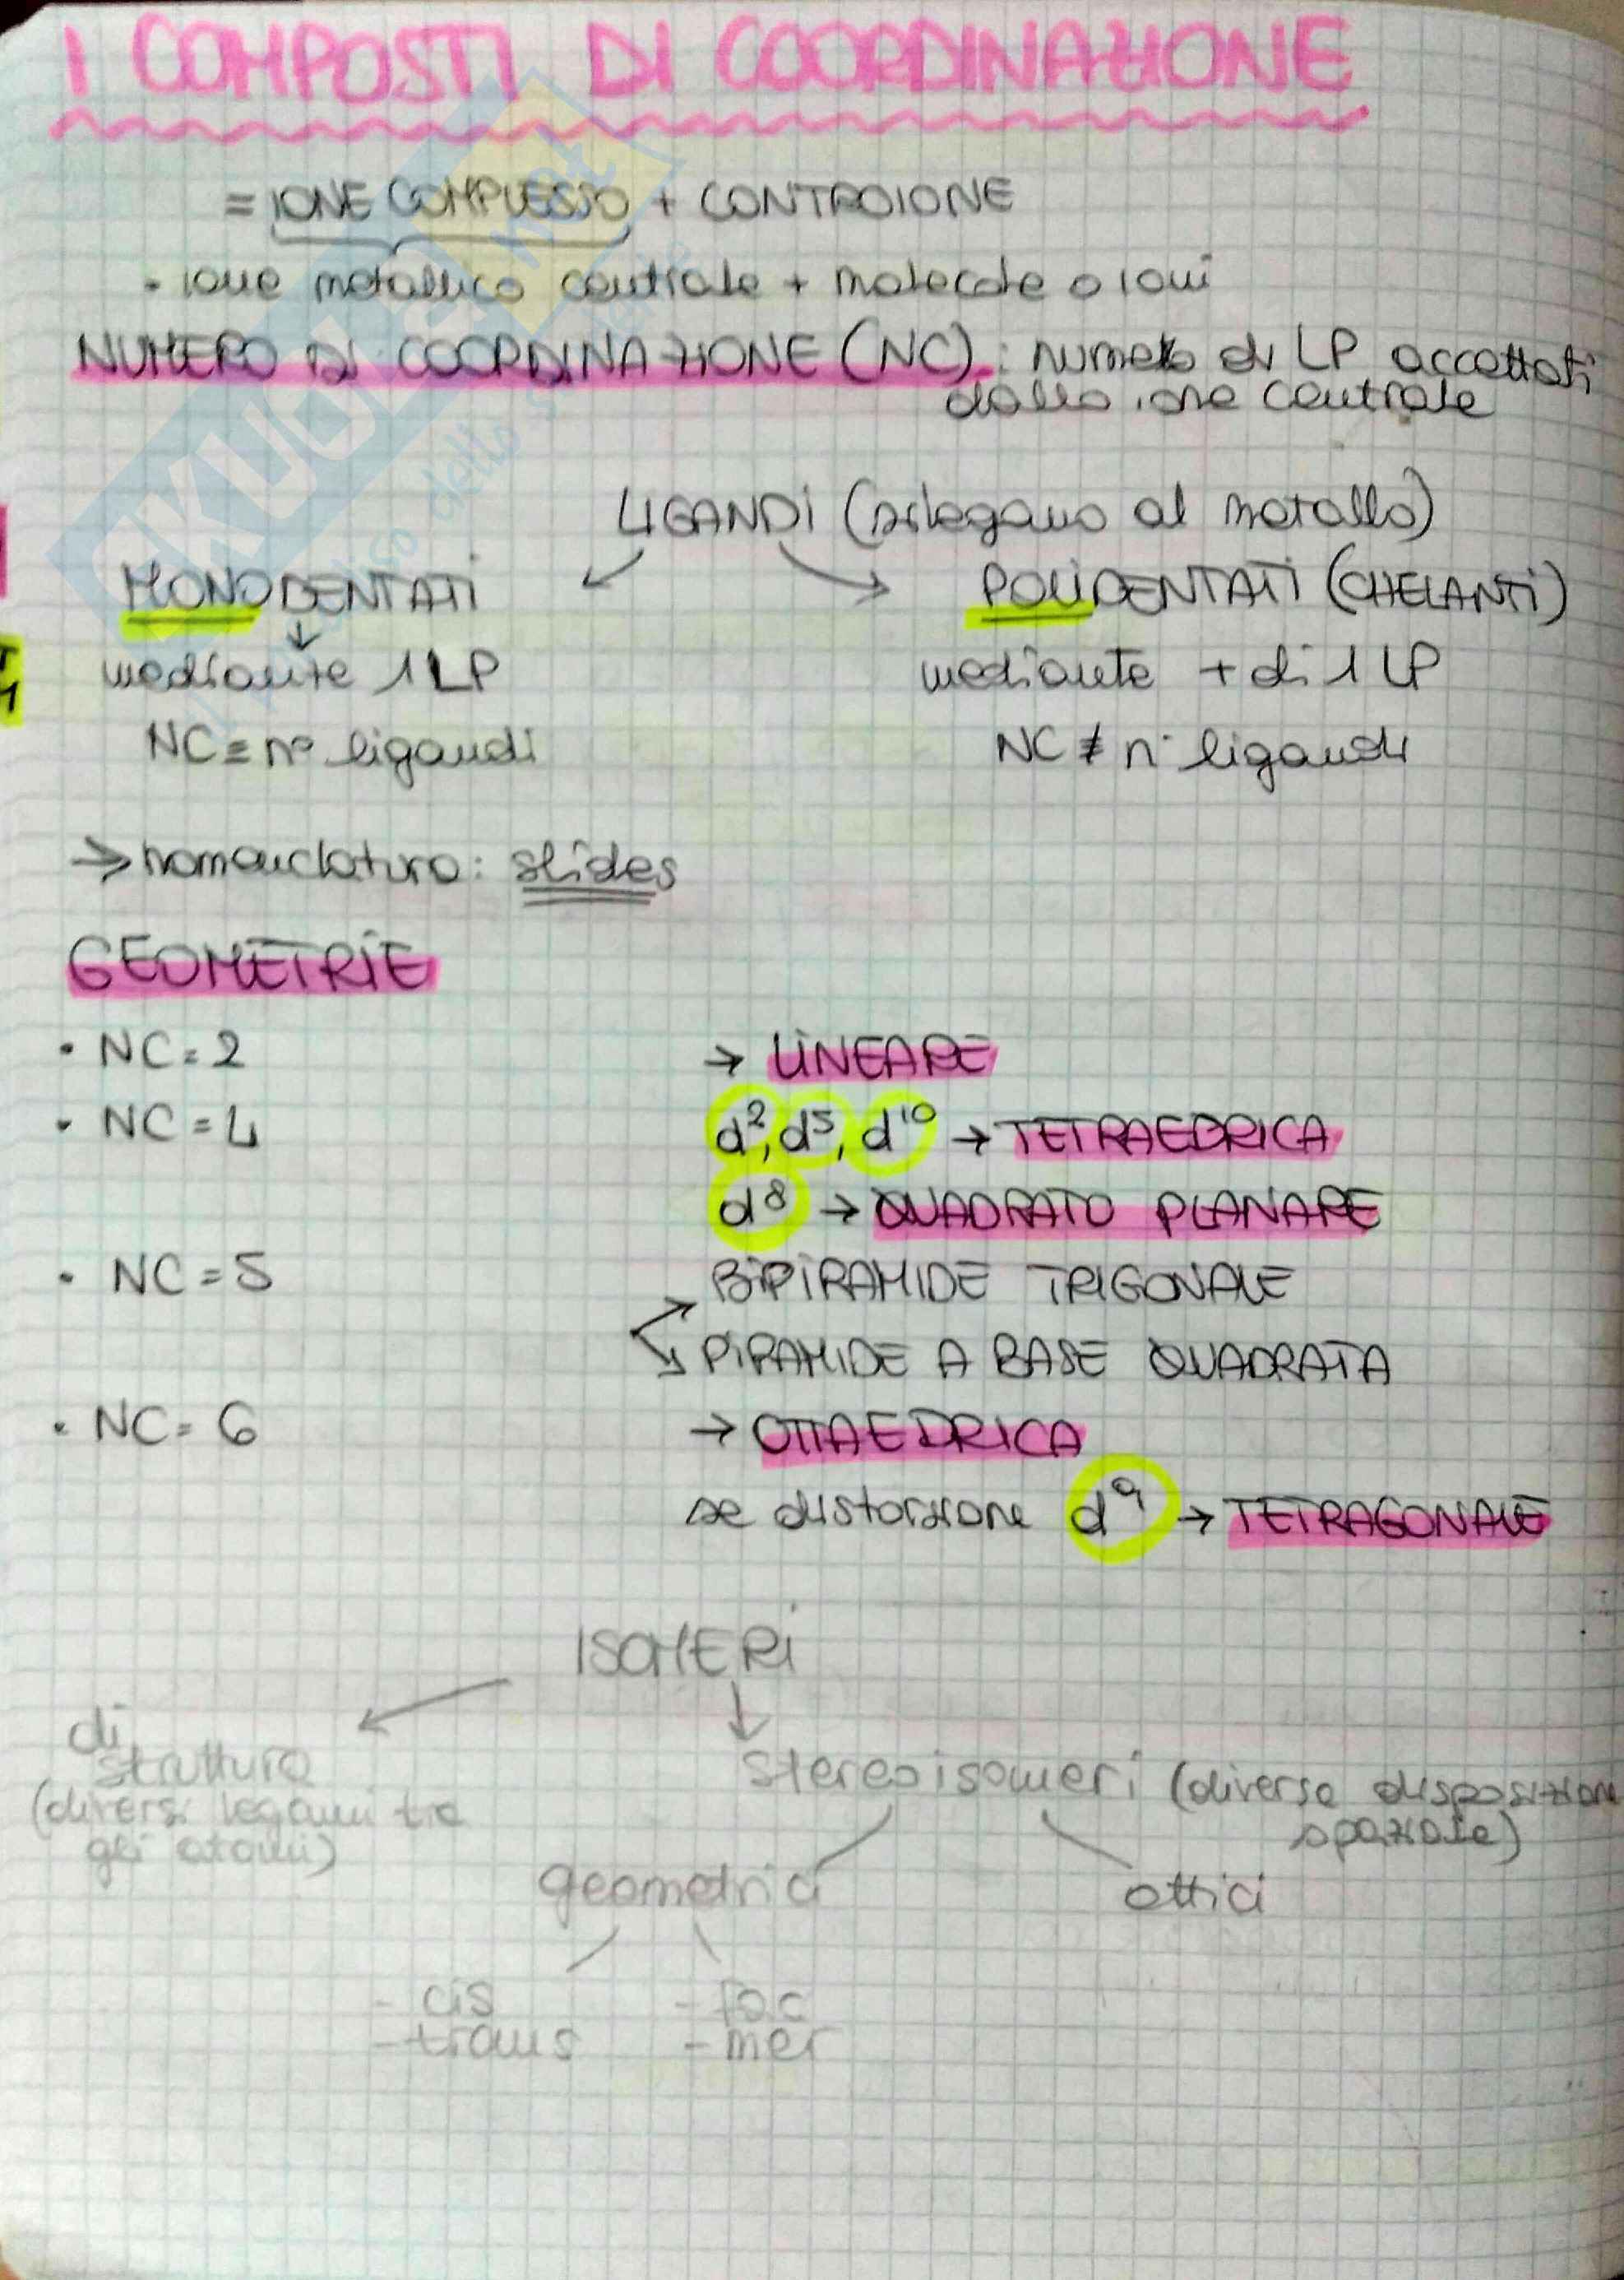 I COMPOSTI DI COORDINAZIONE
= IONE COMPLESSO + CONTROIONE
• ione metallico centrale + molecole o ioni
NUMERO DI COORDINAZIONE (NC): numero di LP accettati
dallo ione centrale
LIGANDI (si legano al metallo)
MONODENTATI POLIDENTATI (CHELANTI)
mediante 1 LP mediante + di 1 LP
NC = n° ligandi NC ≠ n° ligandi
→ nomenclatura: slides
GEOMETRIE
• NC = 2 → LINEARE
• NC = 4 d², d⁵, d¹⁰ → TETRAEDRICA
d⁸ → QUADRATO PLANARE
• NC = 5 BIPIRAMIDE TRIGONALE
PIRAMIDE A BASE QUADRATA
• NC = 6 → OTTAEDRICA
se distorsione d⁹ → TETRAGONALE
ISOMERI
di
struttura stereoisomeri (diversa disposizione
(diversi legami tra spaziale)
gli atomi)
geometrici ottici
- cis - fac
- trans - mer
SKUOLA.net